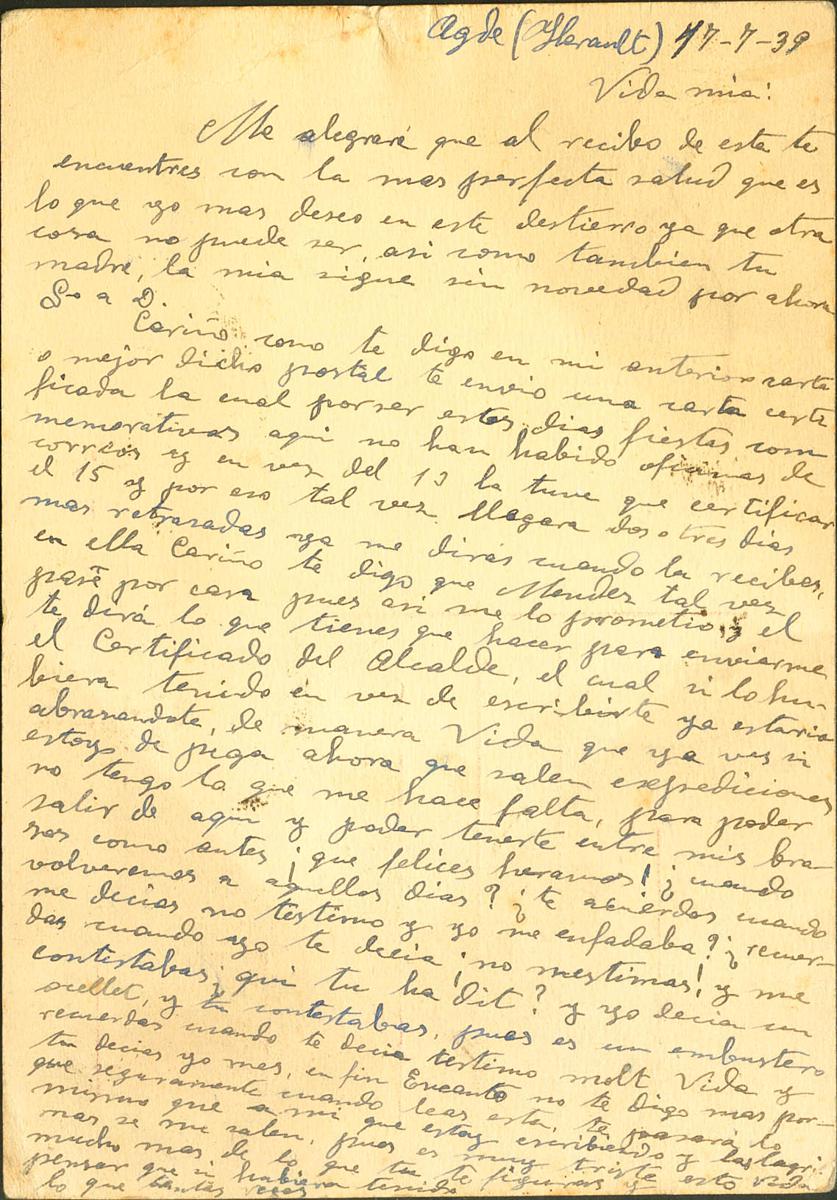 Agde (Herault) 17-7-39
Vida mia:
Me alegraré que al recibo de esta te
encuentres con la mas perfecta salud que es
lo que yo mas deseo en este destierro ya que otra
cosa no puede ser, asi como tambien tu
madre, la mia sigue sin novedad por ahora
G. a D.
Cariño como te digo en mi anterior carta
o mejor dicho postal te envio una carta certi
ficada la cual por ser estos dias fiestas com
memorativas aqui no han habido oficinas de
correos y en vez del 13 la tuve que certificar
el 15 y por eso tal vez llegara dos o tres dias
mas retrasadas ya me dirás cuando la recibes,
en ella Cariño te digo que Mendez tal vez
pasé por casa pues asi me lo prometio, y el
te dirá lo que tienes que hacer para enviarme
el Certificado del Alcalde, el cual si lo hu-
biera tenido en vez de escribirte ya estaria
abrasandote, de manera Vida que ya ves si
estoy de pega ahora que salen expediciones
no tengo lo que me hace falta, para poder
salir de aqui y poder tenerte entre mis bra-
sos como antes ¡que felices heramos! ¿cuando
volveremos a aquellos dias? ¿te acuerdas cuando
me decias no testimo y yo me enfadaba? ¿recuer-
das cuando yo te decia ¡no mestimas! y me
contestabas ¿qui tu ha dit? y yo decia un
ocellet, y tu contestabas, pues es un embustero
recuerdas cuando te decia testimo molt Vida y
tu decias yo mes, en fin Encanto no te digo mas por-
que seguramente cuando leas esta, te pasará lo
mismo que a mi que estoy escribiendo y las lagri
mas se me salen, pues es muy triste esta vida
mucho mas de lo que tu te figuras y
pensar que si hubiera tenido
lo que tantas veces